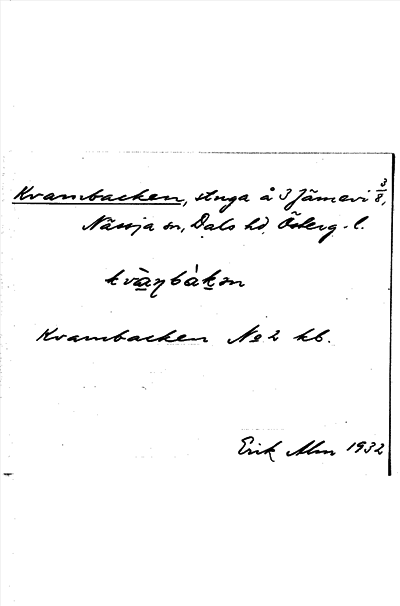 Kvarnbacken, stuga å 3 Jämevi 3/8,
Nässja sn, Dals hd, Österg. l.
kvàṇbákən
Kvarnbacken No 2 kb.
Erik Alm 1932